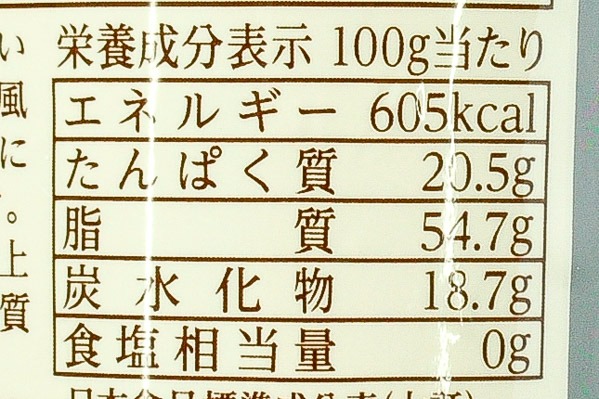 栄養成分表示 100g当たり
エネルギー 605kcal
たんぱく質 20.5g
脂質 54.7g
炭水化物 18.7g
食塩相当量 0g
い
風
に
。
上
質